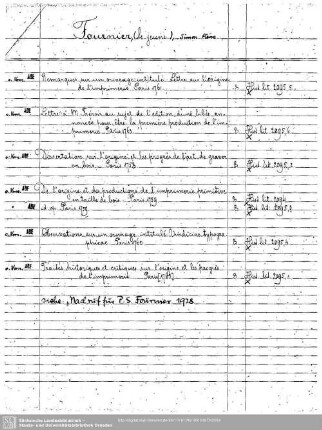 Fournier, (le jeune), Simon Pierre
Remarques sur un ouvrage intitulé Lettre sur l'origine
de l'imprimerie Paris 1761 A Hist. lit. 2095,5.
Lettre à M. Fréron au sujet de l'édition d'une bible, an-
noncée pour être la première production de l'im-
primerie. Paris 1763. B Hist. lit. 2095,6
Dissertation sur l'origine et les progrès de l'art de graver
en bois Paris 1758 B Hist. lit. 2095,2
De l'origine et des productions de l'imprimerie primitive
en taille de bois Paris 1759 B Hist. lit. 2094
Paris 1759 B Hist. lit. 2095,3
Observations sur un ouvrage intitulé Vindiciae typogra-
phicae Paris 1760 B Hist. lit. 2095,4
Traités historiques et critiques sur l'origine et les progrès
de l'imprimerie Paris B Hist. lit. 2095,1
siehe: Nachruf für P. S. Fournier 1928